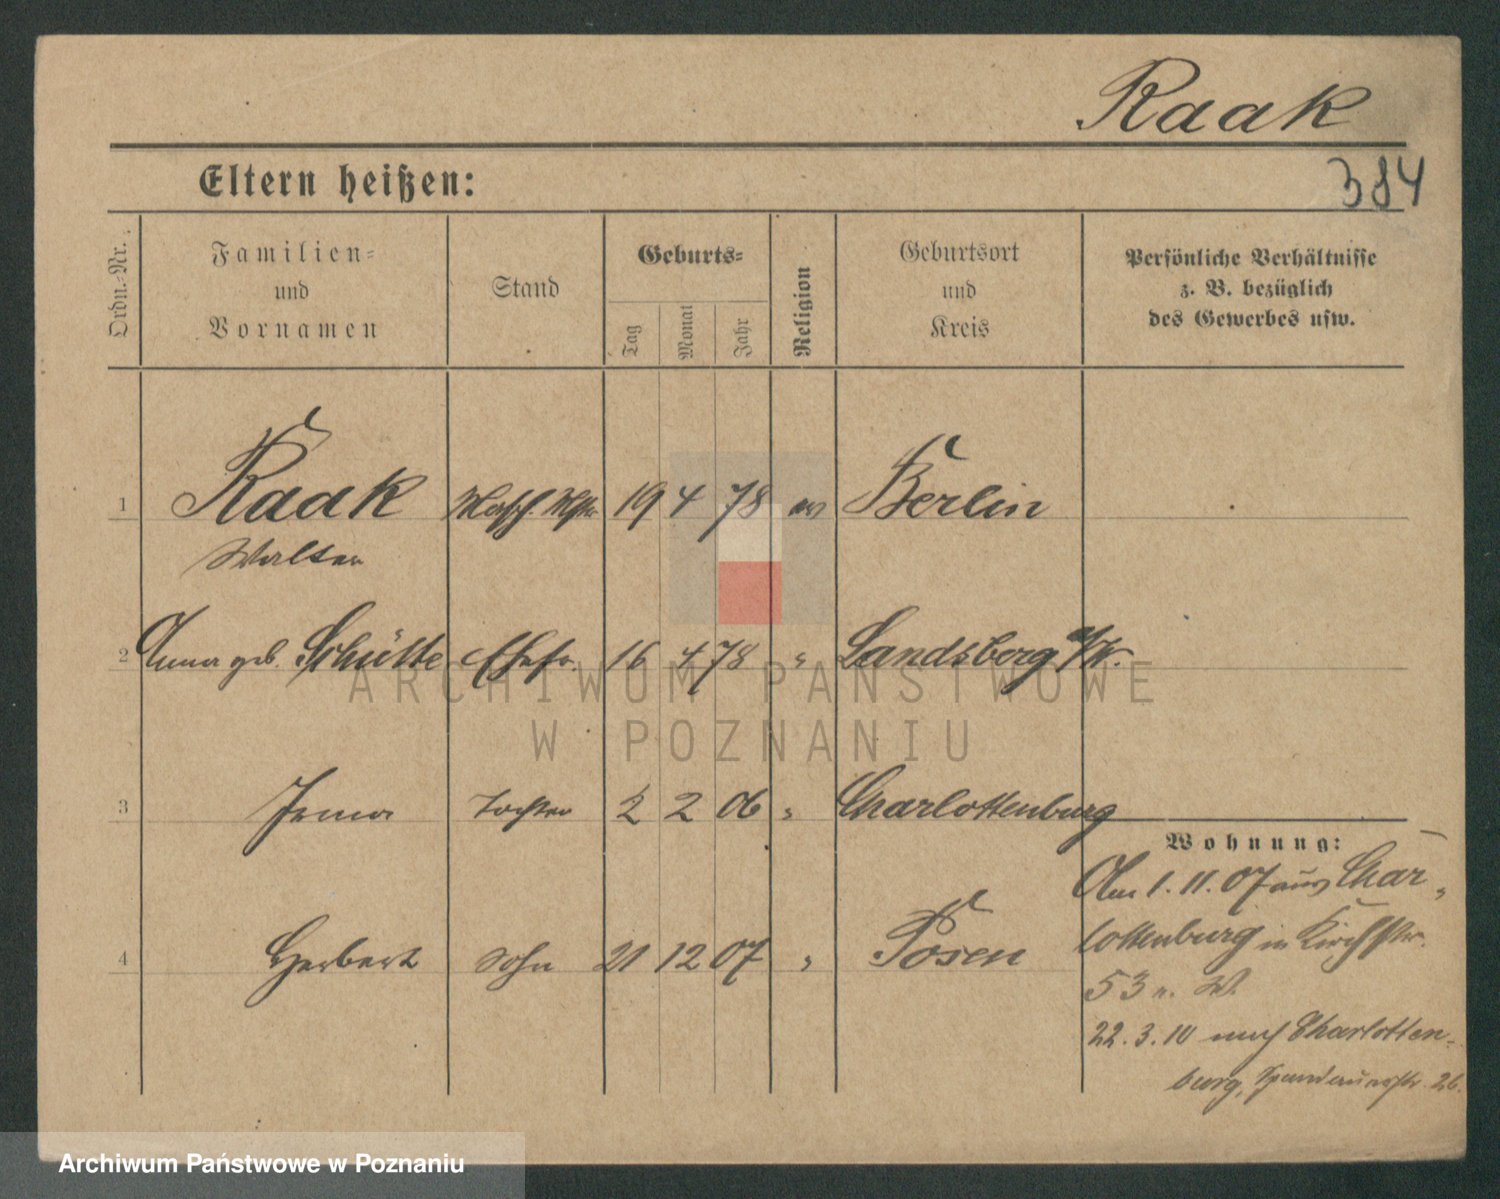 Raak
384
Eltern heißen:
Ordn.-Nr.
Familien-
und
Vornamen
Stand
Geburts-
Tag
Monat
Jahr
Religion
Geburtsort
und
Kreis
Persönliche Verhältnisse
z. B. bezüglich
des Gewerbes usw.
1 Raak 19 4 78 ev Berlin
Walter
2 Anna geb. Schütte Ehefr. 16 4 78 " Landsberg a/W.
3 Irma Tochter 2 2 06 " Charlottenburg
4 Herbert Sohn 21 12 07 " Posen
Wohnung:
Am 1.11.07 aus Char-
lottenburg in Kirchstr.
53 W.
22.3.10 nach Charlotten-
burg, Spandauerstr. 26.
ARCHIWUM PAŃSTWOWE
W POZNANIU
Archiwum Państwowe w Poznaniu